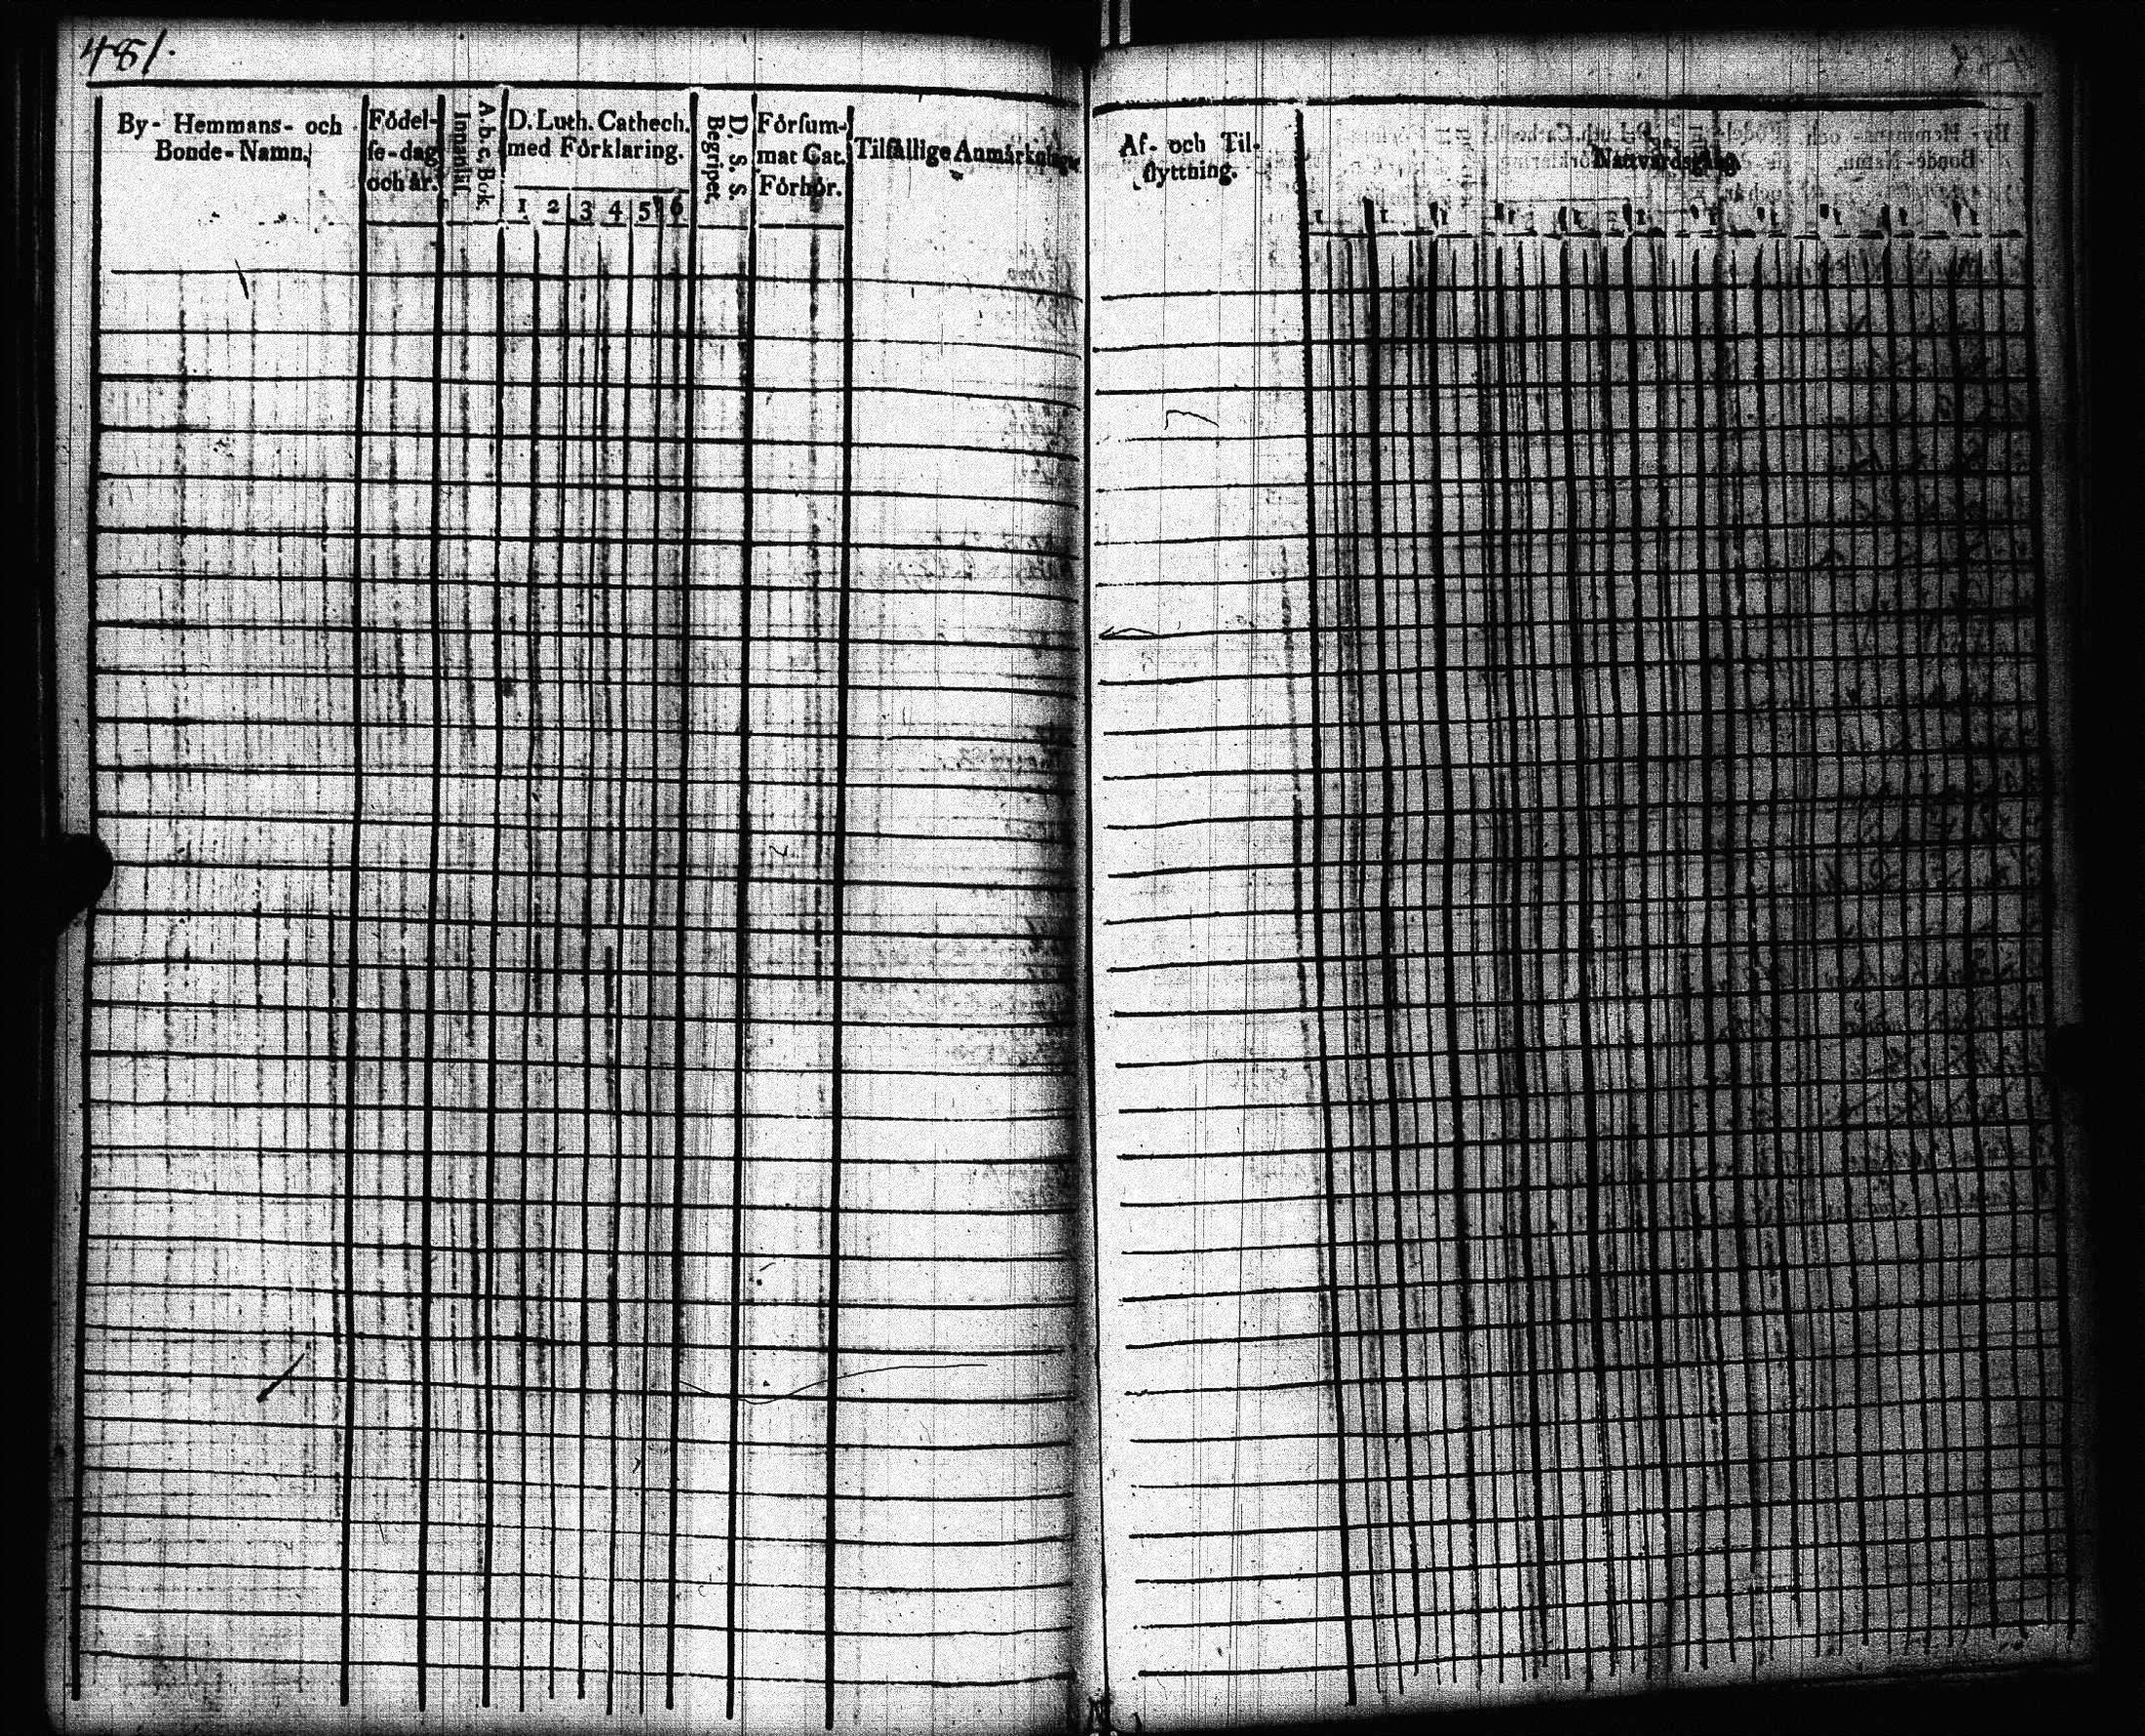 481.
By- Hemmans- och
Bonde-Namn.
Födel-
se-dag
och år.
Innanläs
A.b.c.Bok.
D. Luth. Cathech.
med Förklaring.
1 2 3 4 5 6
D. S. S.
Begripet.
Försum-
mat Cat.
Förhör.
Tilfällige Anmärkningar
Af- och Til-
flyttning.
Nattvardsgång.